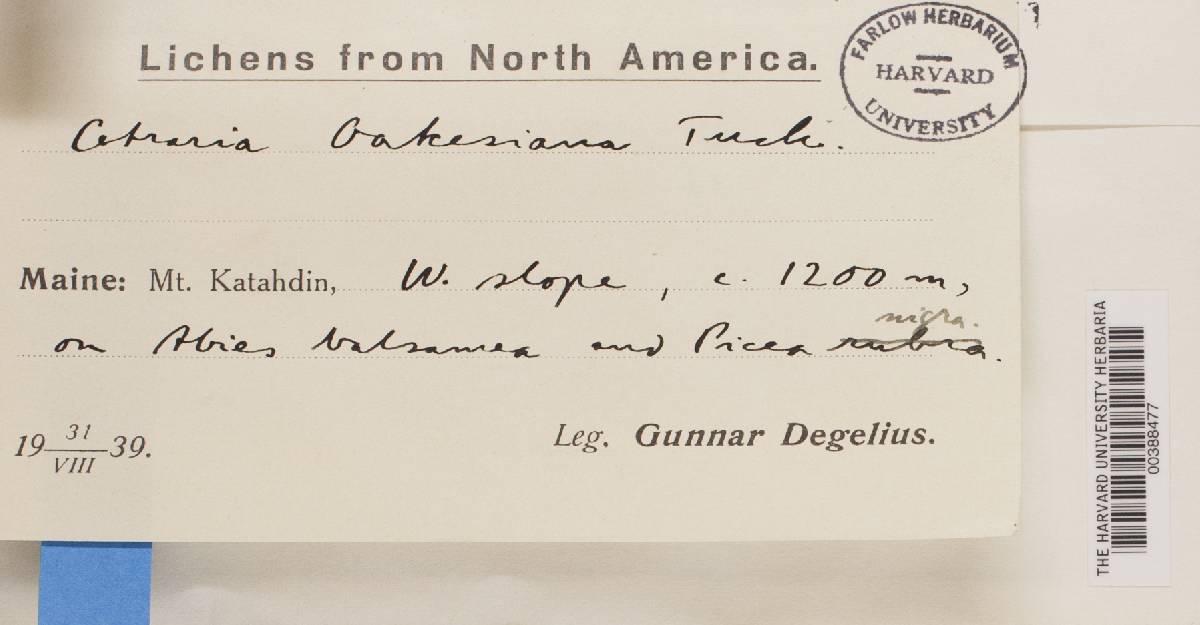 Lichens from North America.
FARLOW HERBARIUM
HARVARD
UNIVERSITY
Cetraria Oakesiana Tuck.
Maine: Mt. Katahdin, W. slope, c. 1200 m,
nigra.
on Abies balsamea and Picea rubra.
19 31/VIII 39.
Leg. Gunnar Degelius.
THE HARVARD UNIVERSITY HERBARIA
00388477